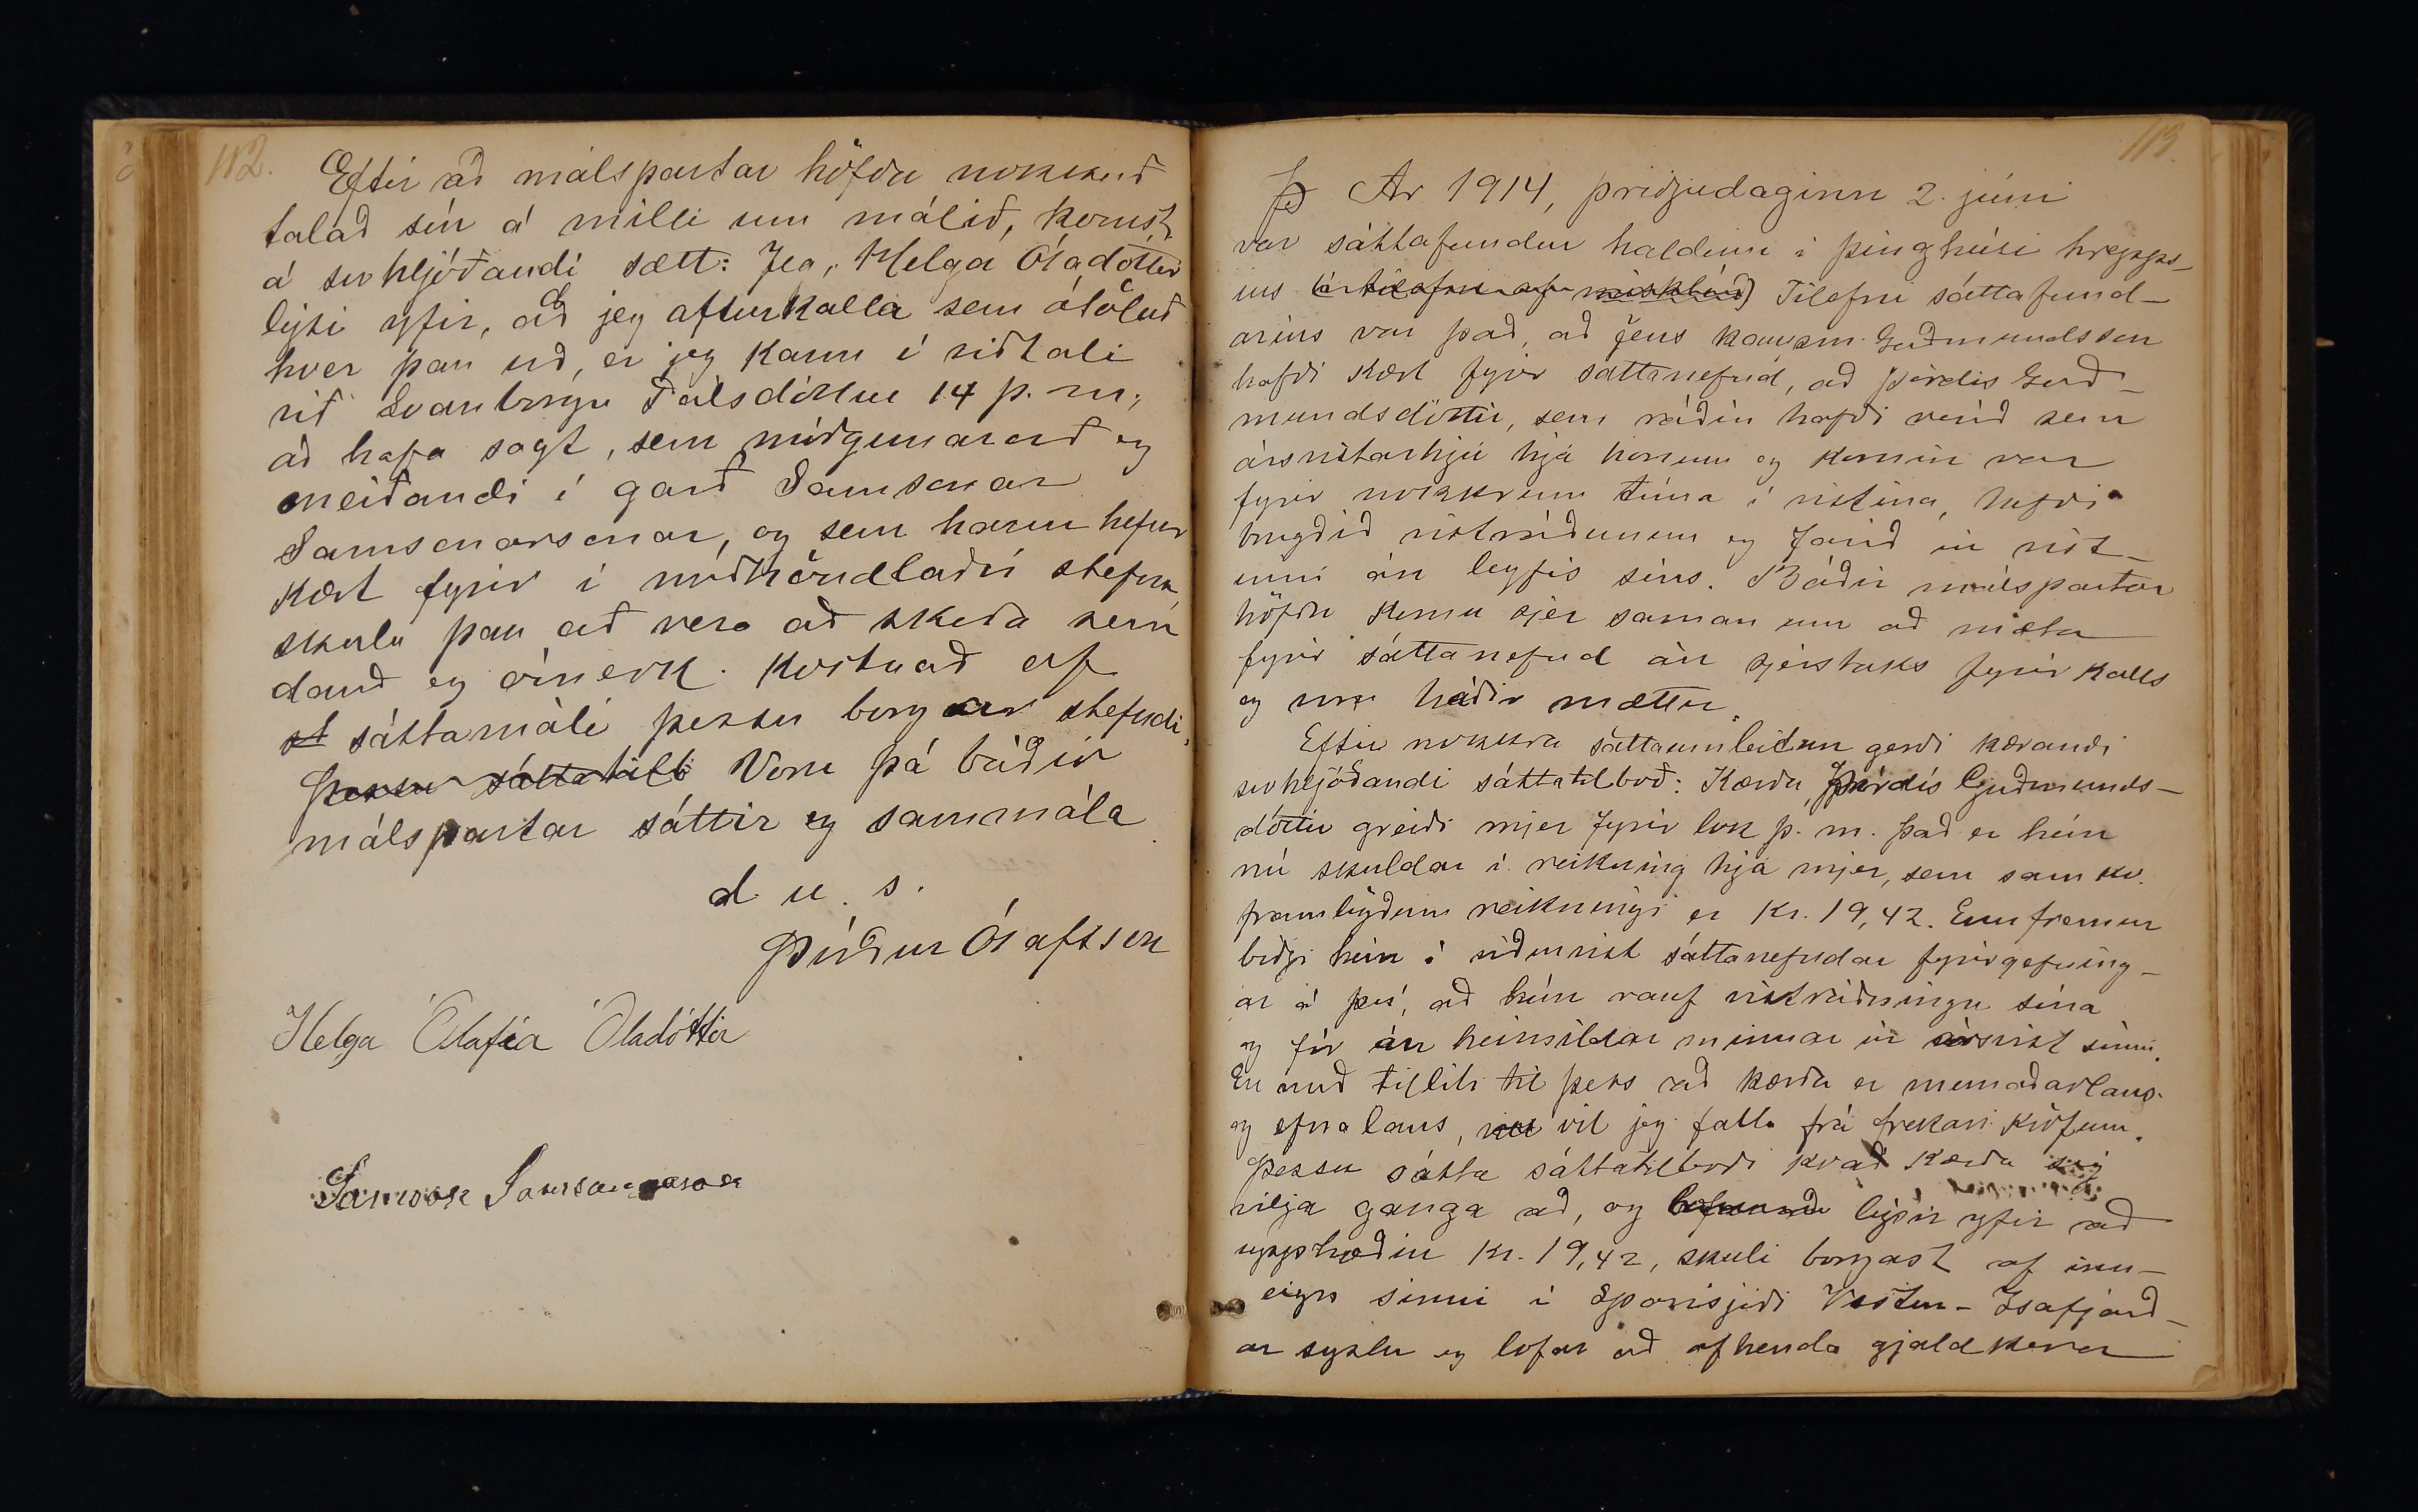 112.
Eftir að málspartar höfðu nokkuð
talað sín á milli um málið, komst
á svohljóðandi sætt: Jeg, Helga Óladóttir
lýsi yfir, að jeg afturkalla sem ótöluð
hver þau orð, er jeg kann í viðtali
við Svanborgu Pálsdóttur 14 þ. m.,
að hafa sagt, sem móðgunarorð og
meiðandi í garð Samsonar
Samsonarsonar, og sem hann hefur
kært fyrir í meðhöndlaðri stefnu,
skulu þau að vera að skoða sem
dauð og ómerk. Kostnað af
st sáttamáli þessu borgar stefndi.
Þessu sáttatilb Voru þá báðir
málspartar sáttir og sammála
d. u. s.
Þórður Ólafsson
Helga Ólafía Óladóttir
Samson Samsonarson
113.
Þ Ár 1914, þriðjudaginn 2. júni
var sáttafundur haldinn í þinghúsi hrepps-
ins (í tilefni af misklíð) Tilefni sáttafund-
arins var það, að Jens kaupm. Guðmundsson
hafði kært fyrir sáttanefnd, að Þórdís Guð-
mundsdóttir, sem ráðin hafði verið sem
ársvistarhjú hjá honum og komin var
fyrir nokkrum tíma í vistina, hefði
brugðið vistráðunum og farið úr vist-
inni án leyfis síns. Báðir málspartar
höfðu komu sjer saman um að mæta
fyrir sáttanefnd án sjerstaks fyrirkalls
og nú báðir mættu.
Eftir nokkra sáttaumleitun gerði kærandi
svohljóðandi sáttatilboð: Kærða, Þórdís Guðmunds-
dóttir greiði mjer fyrir lok þ. m. það er hún
nú skuldar í reikning hjá mjer, sem samkv.
framlögðum reikningi er Kr. 19,42. Ennfremur
biðji hún í viðurvist sáttanefndar fyrirgefning-
ar á því, að hún rauf vistráðningu sína
og fór án heimildar minnar úr ársvist sinni.
En með tilliti til þess að kærða er munaðarlaus
og efnalaus, vil jeg falla frá frekari kröfum.
Þessu sátta sáttatilboði kvað kærða sig
vilja ganga að, og lýsir yfir að
upphæðin Kr. 19,42, skuli borgast af inn-
eign sinni í Sparisjóði Vestur-Ísafjarð-
ar sýslu og lofar að afhenda gjaldkera